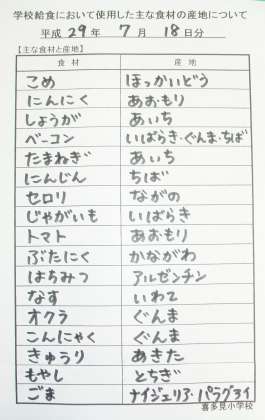 学校給食において使用した主な食材の産地について
平成 29 年 7 月 18 日分
【主な食材と産地】
食材 産地
こめ ほっかいどう
にんにく あおもり
しょうが あいち
ベーコン いばらき・ぐんま・ちば
たまねぎ あいち
にんじん ちば
セロリ ながの
じゃがいも いばらき
トマト あおもり
ぶたにく かながわ
はちみつ アルゼンチン
なす いわて
オクラ ぐんま
こんにゃく ぐんま
きゅうり あきた
もやし とちぎ
ごま ナイジェリア・パラグアイ
喜多見小学校